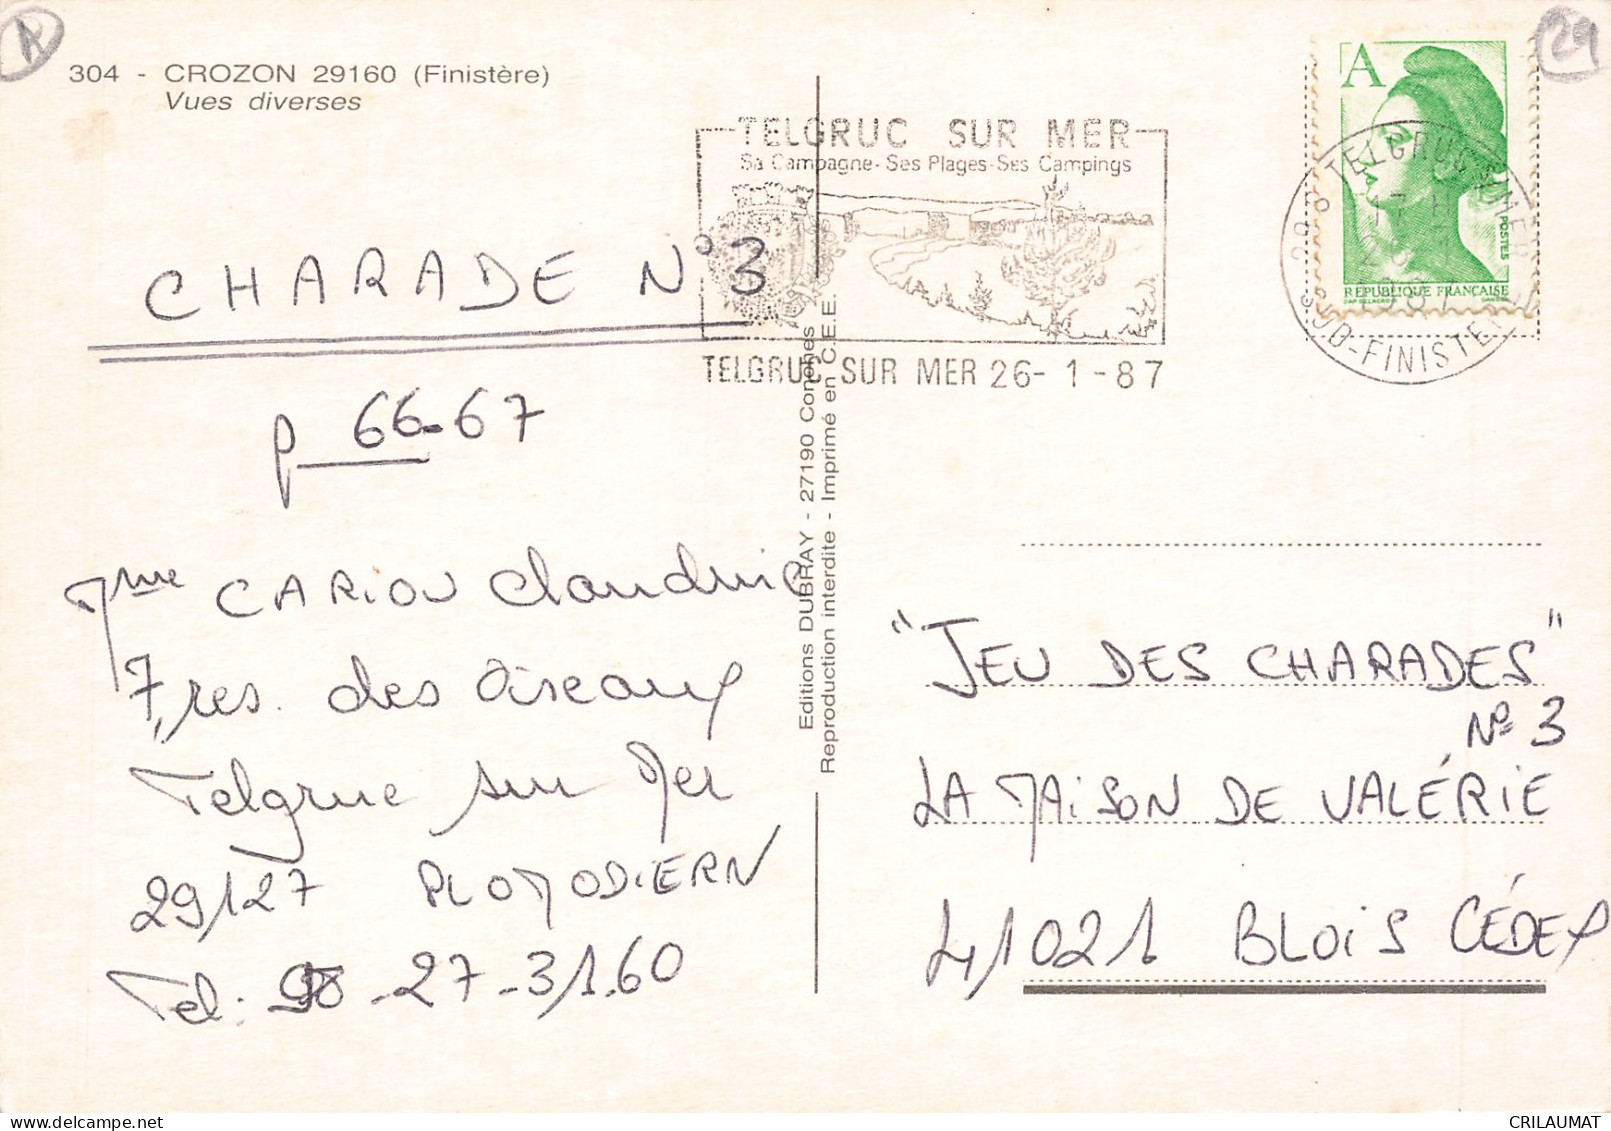 A
29
304 - CROZON 29160 (Finistère)
Vues diverses
TELGRUC SUR MER
Sa Campagne-Ses Plages-Ses Campings
TELGRUC SUR MER 26-1-87
A
POSTES
RÉPUBLIQUE FRANÇAISE
TELGRUC S/MER
SUD-FINISTERE
CHARADE N° 3
p 66-67
Mme CARIOU Claudine
7, res. des Oiseaux
Telgruc sur Mer
29127 PLOMODIERN
Tel: 98-27-31.60
Editions DUBRAY - 27190 Conches
Reproduction interdite - Imprimé en C.E.E.
"JEU DES CHARADES"
N° 3
LA MAISON DE VALÉRIE
41021 BLOIS CÉDEX
CRILAUMAT